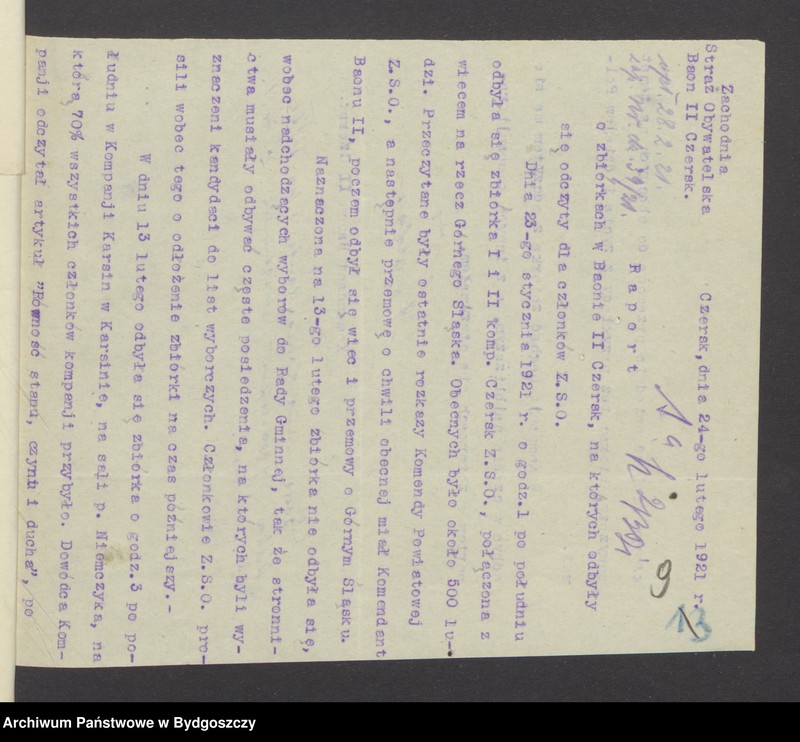 Zachodnia
Straż Obywatelska
Baon II Czersk.
Czersk, dnia 24-go lutego 1921 r.
wpł. 28.2.21.
9
13
R a p o r t
o zbiorkach w Baonie II Czersk, na których odbyły
się odczyty dla członków Z.S.O.
Dnia 23-go stycznia 1921 r. o godz.1 po południu
odbyła się zbiórka I i II komp. Czersk Z.S.O., połączona z
wiecem na rzecz Górnego Śląska. Obecnych było około 500 lu-
dzi. Przeczytane były ostatnie rozkazy Komendy Powiatowej
Z.S.O., a następnie przemowę o chwili obecnej miał Komendant
Baonu II, poczem odbył się wiec i przemowy o Górnym Śląsku.
Naznaczona na 13-go lutego zbiórka nie odbyła się,
wobec nadchodzących wyborów do Rady Gminnej, tak że stronni-
ctwa musiały odbywać częste posiedzenia, na których byli wy-
znaczeni kandydaci do list wyborczych. Członkowie Z.S.O. pro-
sili wobec tego o odłożenie zbiórki na czas późniejszy.-
W dniu 13 lutego odbyła się zbiórka o godz.3 po po-
łudniu w Kompanji Karsin w Karsinie, na sali p. Niemczyka, na
którą 70% wszystkich członków kompanji przybyło. Dowódca Kom-
panji odczytał artykuł "Równość stanu, czynu i ducha", po
Archiwum Państwowe w Bydgoszczy